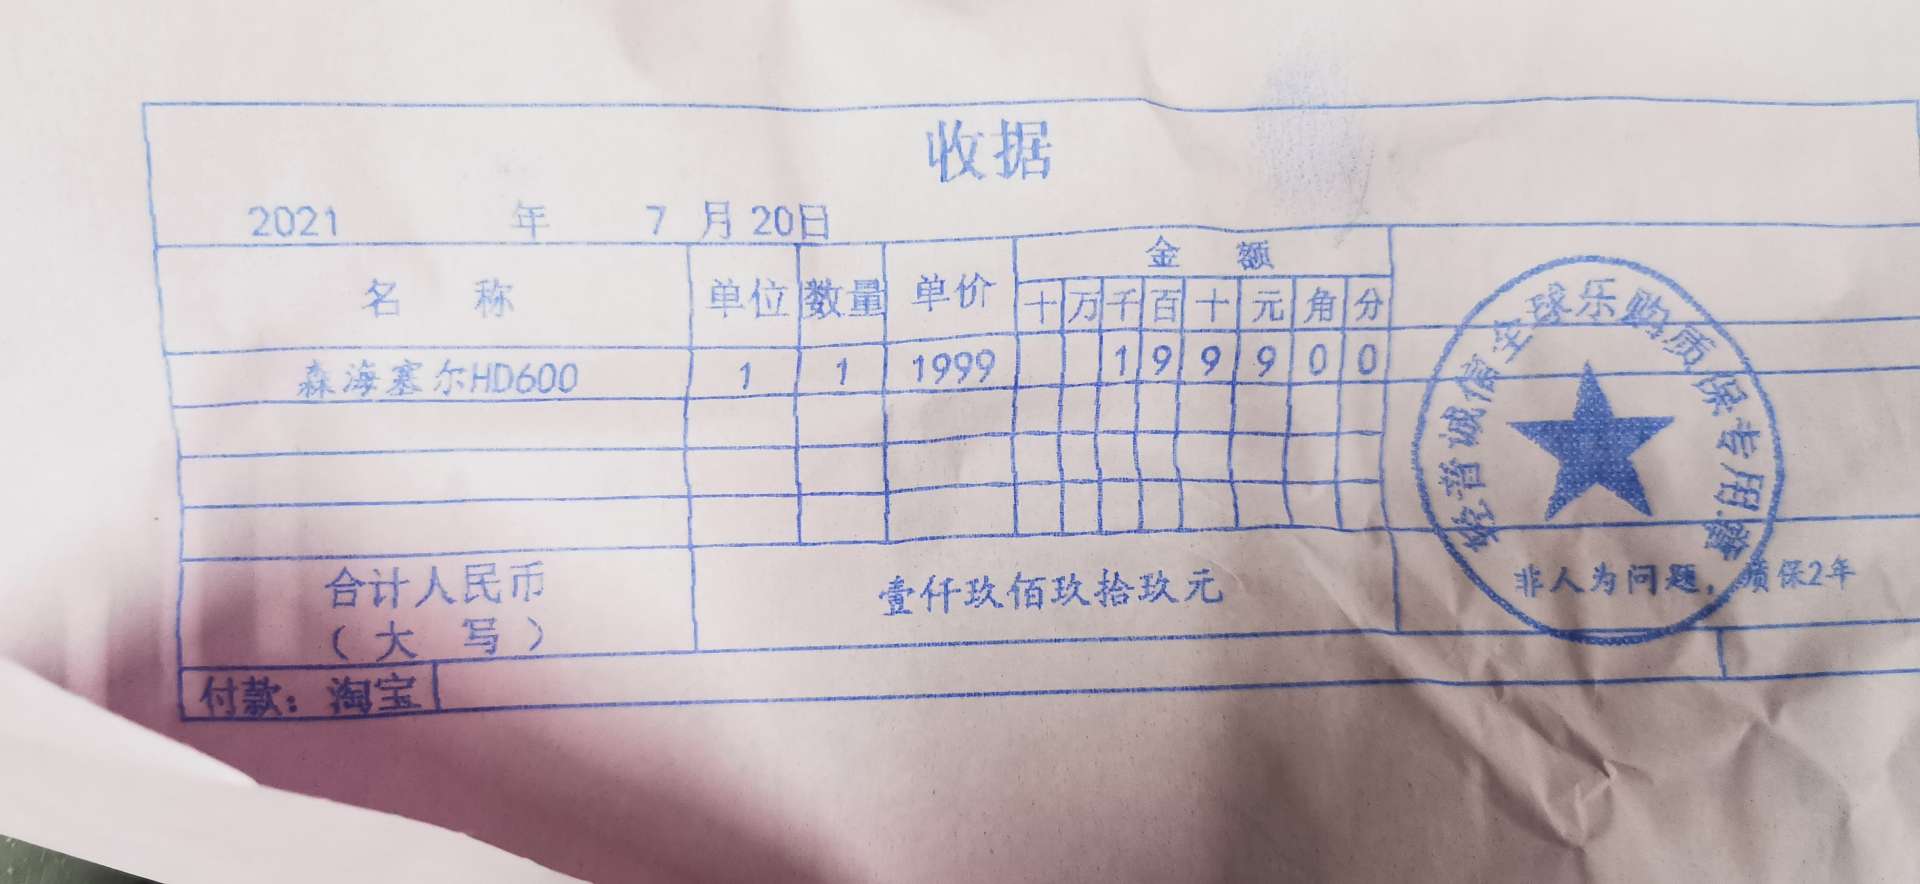 收据
2021 年 7 月 20日
名 称 单位 数量 单价 金 额
十 万 千 百 十 元 角 分
森海塞尔HD600 1 1 1999 1 9 9 9 0 0
合计人民币
（ 大 写 ）
壹仟玖佰玖拾玖元
付款：淘宝
诚信全球乐购质保专用章
非人为问题，质保2年